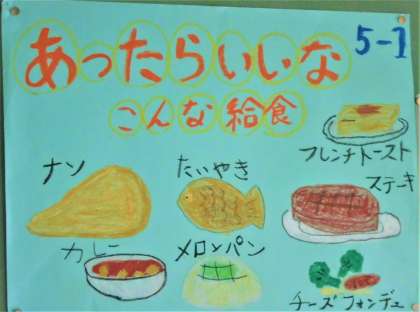 あったらいいな
5-1
こんな給食
フレンチトースト
ナン
たいやき
ステーキ
カレー
メロンパン
チーズフォンデュ